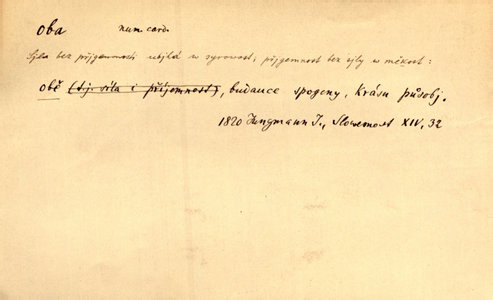 oba num. card.
Sjla bez přjgemnosti ubjhá w syrowost, přjgemnost bez sjly w měkost:
obě (tj. síla i příjemnost), budauce spogeny, krásu působj.
1820 Jungmann J., Slowesnost XIV, 32